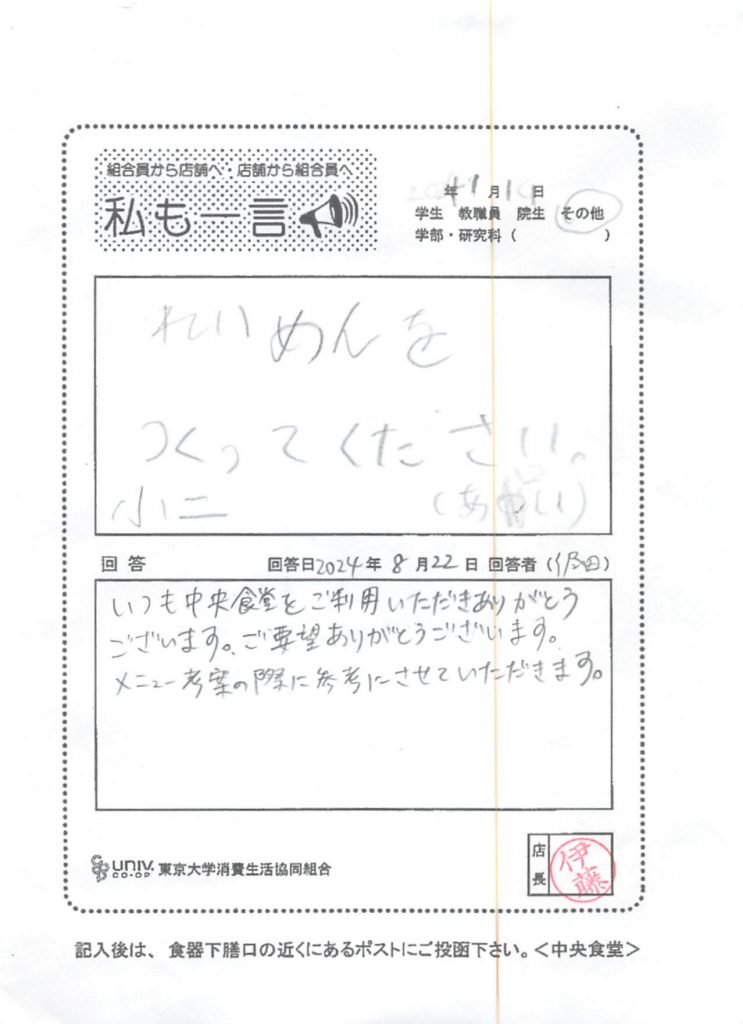 組合員から店舗へ・店舗から組合員へ
私も一言
年 月 日
学生 教職員 院生 その他
学部・研究科 ( )
れいめんを
つくってください。
小二
回答 回答日2024年8月22日 回答者 ( 田)
いつも中央食堂をご利用いただきありがとう
ございます。ご要望ありがとうございます。
メニュー考案の際に参考にさせていただきます。
univ. CO-OP 東京大学消費生活協同組合
店長 伊藤
記入後は、食器下膳口の近くにあるポストにご投函下さい。<中央食堂>